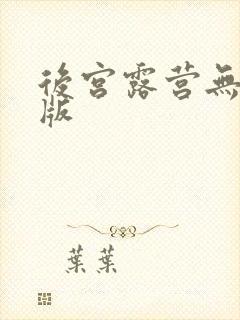 後宮露营無
版
葉葉